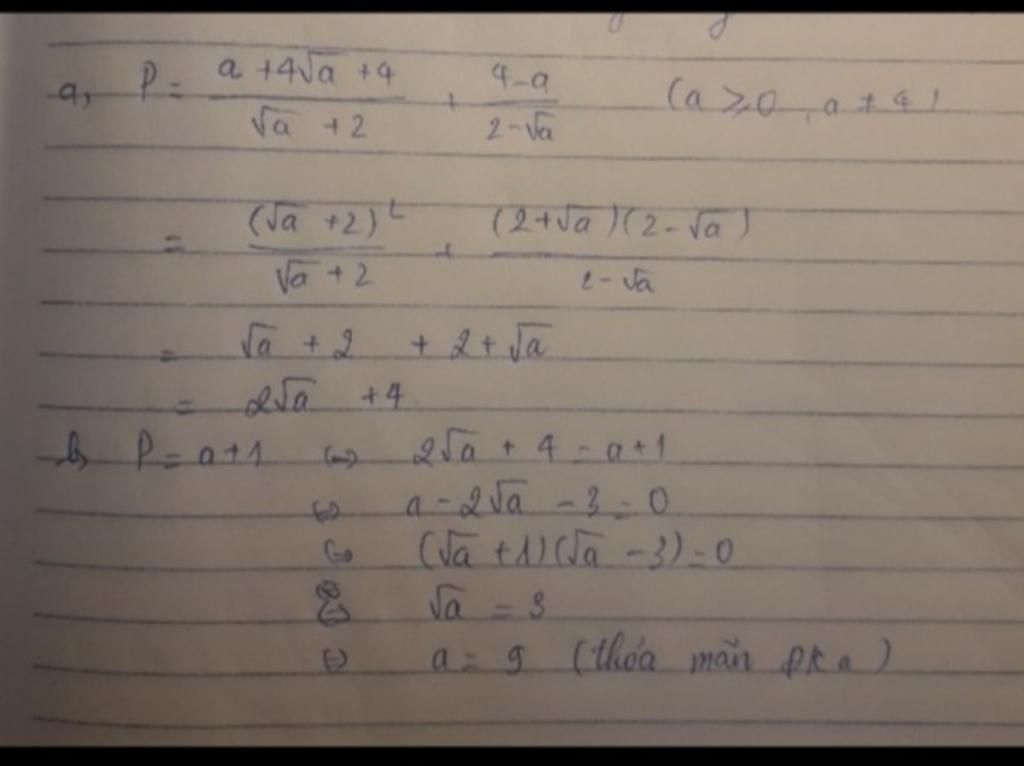 a, P = (a + 4√a + 4)/(√a + 2) + (4 - a)/(2 - √a) (a ≥ 0, a ≠ 4)
= (√a + 2)²/(√a + 2) + (2 + √a)(2 - √a)/(2 - √a)
= √a + 2 + 2 + √a
= 2√a + 4
b, P = a + 1 ⇔ 2√a + 4 = a + 1
⇔ a - 2√a - 3 = 0
⇔ (√a + 1)(√a - 3) = 0
⇔ √a = 3
⇔ a = 9 (thỏa mãn ĐK a)